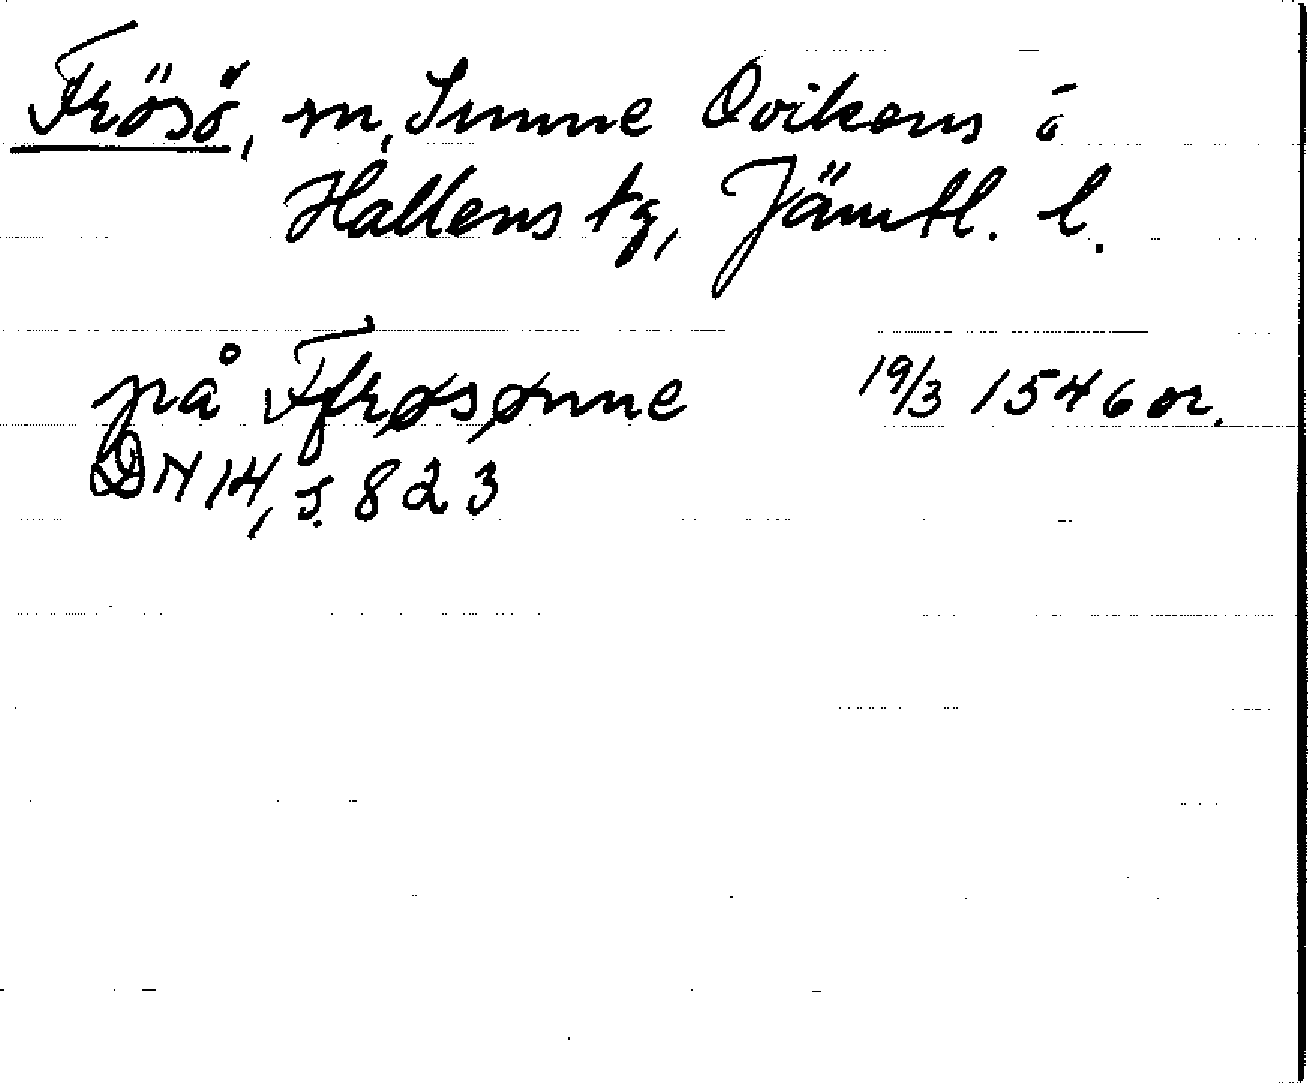 Frösö, sn, Sunne Ovikens ó
Hallens tg, Jämtl. l.
på Ffrøsønne 19/3 1546 or.
DN 14, s. 823